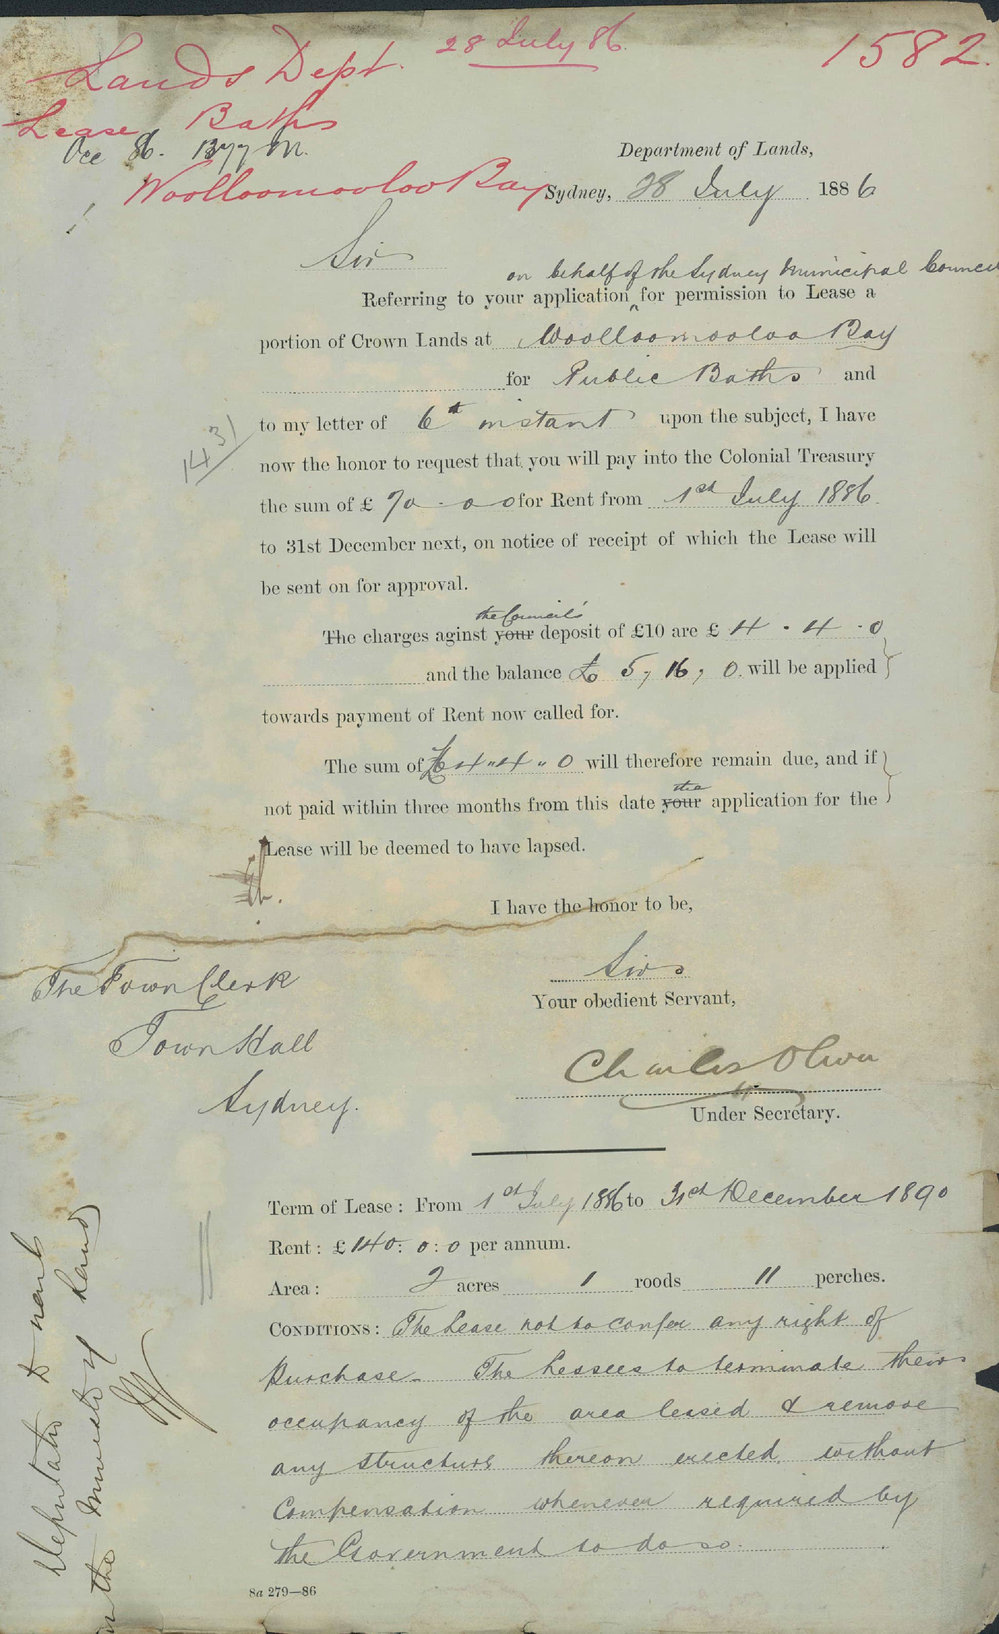 Lands Dept. 28 July 86 1582.
Lease Baths
Dec 86. 1377 M.
Woolloomooloo Bay
Department of Lands,
Sydney, 28 July 1886
Sir
on behalf of the Sydney Municipal Council
Referring to your application ^ for permission to Lease a
portion of Crown Lands at Woolloomooloo Bay
for Public Baths and
to my letter of 6th instant upon the subject, I have
1431
now the honor to request that you will pay into the Colonial Treasury
the sum of £ 70 . 0 0 for Rent from 1st July 1886
to 31st December next, on notice of receipt of which the Lease will
be sent on for approval.
the Council's
The charges aginst your deposit of £10 are £ 4 . 4 . 0
and the balance £ 5, 16, 0. will be applied
towards payment of Rent now called for.
The sum of £ 4 " 4 " 0 will therefore remain due, and if
the
not paid within three months from this date your application for the
Lease will be deemed to have lapsed.
I have the honor to be,
Sir
The Town Clerk
Your obedient Servant,
Town Hall
Charles Oliver
Sydney.
Under Secretary.
Term of Lease: From 1st July 1886 to 31st December 1890
Rent: £ 140: 0: 0 per annum.
Area: 2 acres 1 roods 11 perches.
CONDITIONS: The Lease not to confer any right of
purchase. The Lessees to terminate their
occupancy of the area leased & remove
any structure thereon erected, without
Compensation whenever required by
the Government to do so.
8a 279—86